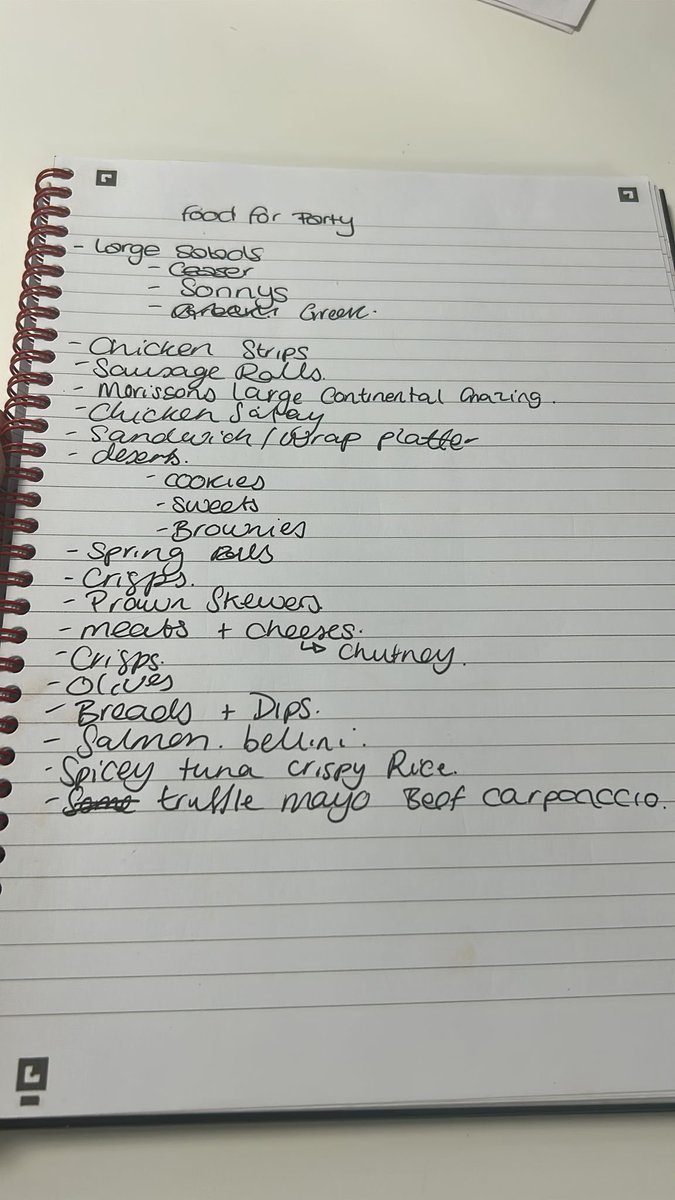 Food for Party
- Large Salads
- Ceaser
- Sonnys
- Greek.
- Chicken Strips
- Sausage Rolls.
- Morissons large Continental Grazing.
- Chicken Satay
- Sandwich / Wrap platter
- deserts.
- cookies
- Sweets
- Brownies
- Spring Rolls
- Crisps.
- Prawn Skewers
- meats + cheeses.
↳ Chutney.
- Crisps.
- Olives
- Breads + Dips.
- Salmon. bellini.
- Spicey tuna crispy Rice.
- Some truffle mayo Beef carpaccio.